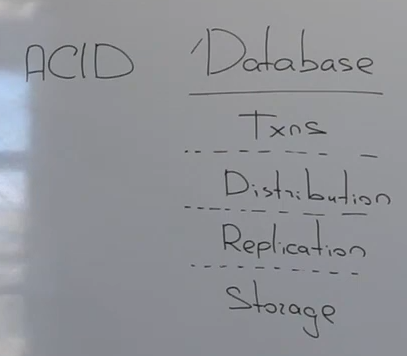 ACID Database
Txns
Distribution
Replication
Storage